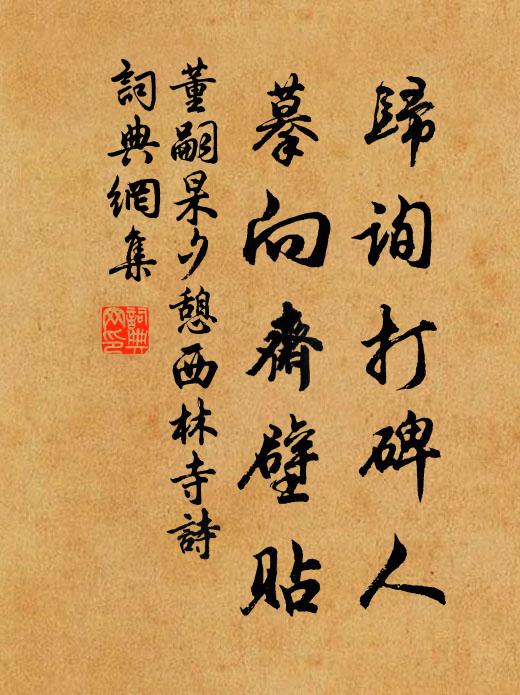 歸詢打碑人
摹向齋壁貼
董嗣杲少憩西林寺詩
詞典網集
詞典網印